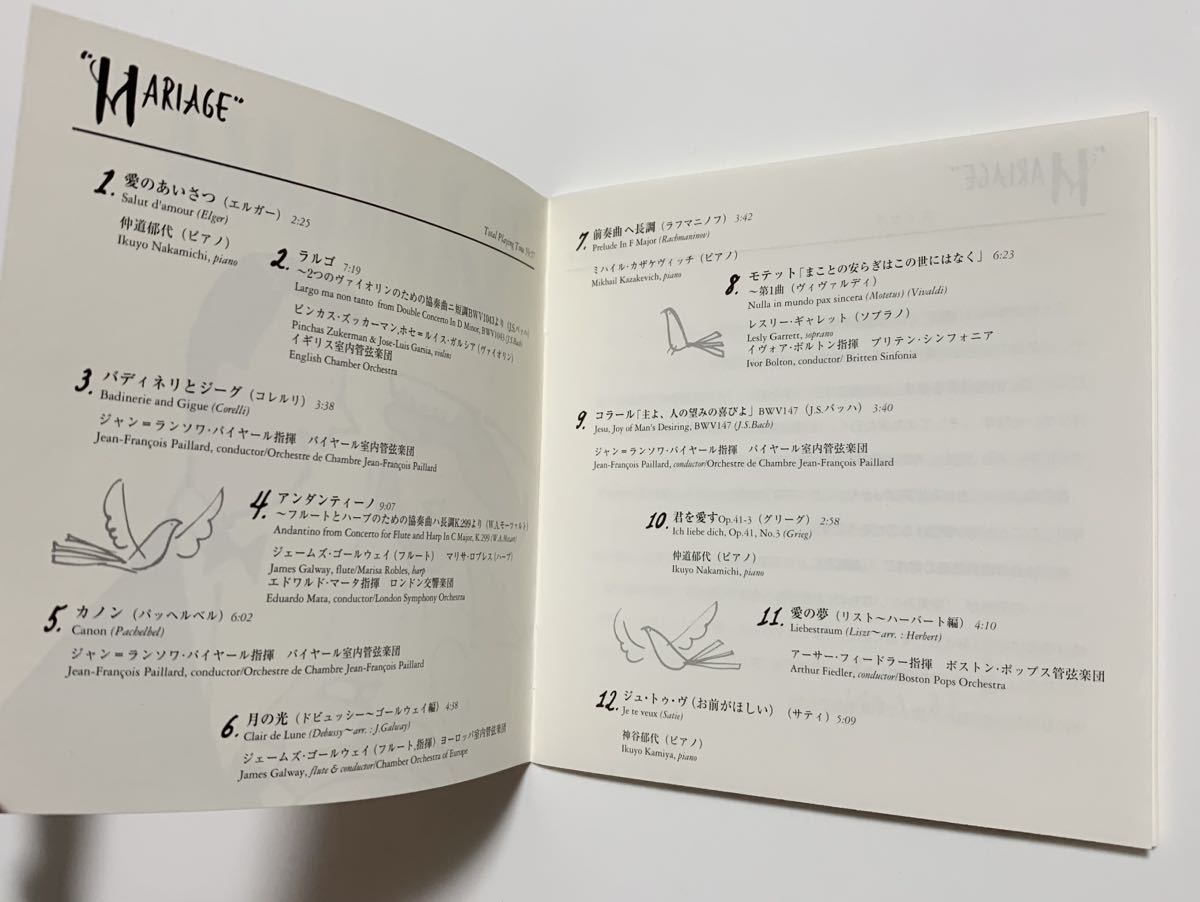 "MARIAGE"
Total Playing Time
1. 愛のあいさつ（エルガー） 2:25
Salut d'amour (Elger)
仲道郁代（ピアノ）
Ikuyo Nakamichi, piano
2. ラルゴ 7:19
〜2つのヴァイオリンのための協奏曲ニ短調BWV1043より（J.S.バッハ）
Largo ma non tanto from Double Concerto In D Minor, BWV1043 (J.S.Bach)
ピンカス・ズッカーマン,ホセ=ルイス・ガルシア（ヴァイオリン）
Pinchas Zukerman & Jose-Luis Garsia, violins
イギリス室内管弦楽団
English Chamber Orchestra
3. バディネリとジーグ（コレルリ） 3:38
Badinerie and Gigue (Corelli)
ジャン=ランソワ・パイヤール指揮　パイヤール室内管弦楽団
Jean-François Paillard, conductor/Orchestre de Chambre Jean-François Paillard
4. アンダンティーノ 9:07
〜フルートとハープのための協奏曲ハ長調K.299より（W.A.モーツァルト）
Andantino from Concerto for Flute and Harp In C Major, K.299 (W.A.Mozart)
ジェームズ・ゴールウェイ（フルート）　マリサ・ロブレス（ハープ）
James Galway, flute/Marisa Robles, harp
エドワルド・マータ指揮　ロンドン交響楽団
Eduardo Mata, conductor/London Symphony Orchestra
5. カノン（パッヘルベル） 6:02
Canon (Pachelbel)
ジャン=ランソワ・パイヤール指揮　パイヤール室内管弦楽団
Jean-François Paillard, conductor/Orchestre de Chambre Jean-François Paillard
6. 月の光（ドビュッシー〜ゴールウェイ編） 4:38
Clair de Lune (Debussy〜arr. : J.Galway)
ジェームズ・ゴールウェイ（フルート,指揮）ヨーロッパ室内管弦楽団
James Galway, flute & conductor/Chamber Orchestra of Europe
7. 前奏曲ヘ長調（ラフマニノフ） 3:42
Prelude In F Major (Rachmaninov)
ミハイル・カザケヴィッチ（ピアノ）
Mikhail Kazakevich, piano
8. モテット「まことの安らぎはこの世にはなく」 6:23
〜第1曲（ヴィヴァルディ）
Nulla in mundo pax sincera (Motetus) (Vivaldi)
レスリー・ギャレット（ソプラノ）
Lesly Garrett, soprano
イヴォア・ボルトン指揮　ブリテン・シンフォニア
Ivor Bolton, conductor/ Britten Sinfonia
9. コラール「主よ、人の望みの喜びよ」BWV147（J.S.バッハ） 3:40
Jesu, Joy of Man's Desiring, BWV147 (J.S.Bach)
ジャン=ランソワ・パイヤール指揮　パイヤール室内管弦楽団
Jean-François Paillard, conductor/Orchestre de Chambre Jean-François Paillard
10. 君を愛すOp.41-3（グリーグ） 2:58
Ich liebe dich, Op.41, No.3 (Grieg)
仲道郁代（ピアノ）
Ikuyo Nakamichi, piano
11. 愛の夢（リスト〜ハーバート編） 4:10
Liebestraum (Liszt〜arr. : Herbert)
アーサー・フィードラー指揮　ボストン・ポップス管弦楽団
Arthur Fiedler, conductor/Boston Pops Orchestra
12. ジュ・トゥ・ヴ（お前がほしい）（サティ） 5:09
Je te veux (Satie)
神谷郁代（ピアノ）
Ikuyo Kamiya, piano